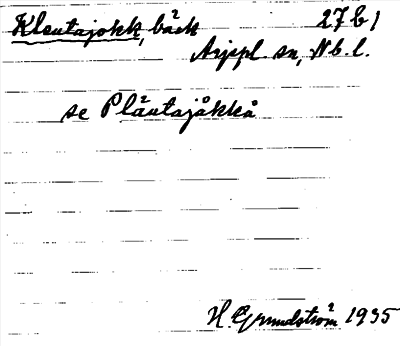 Klautajokk, bäck 27 b 1
Arjepl. sn, Nb. l.
se Pläutajåkkå
H. Grundström 1935